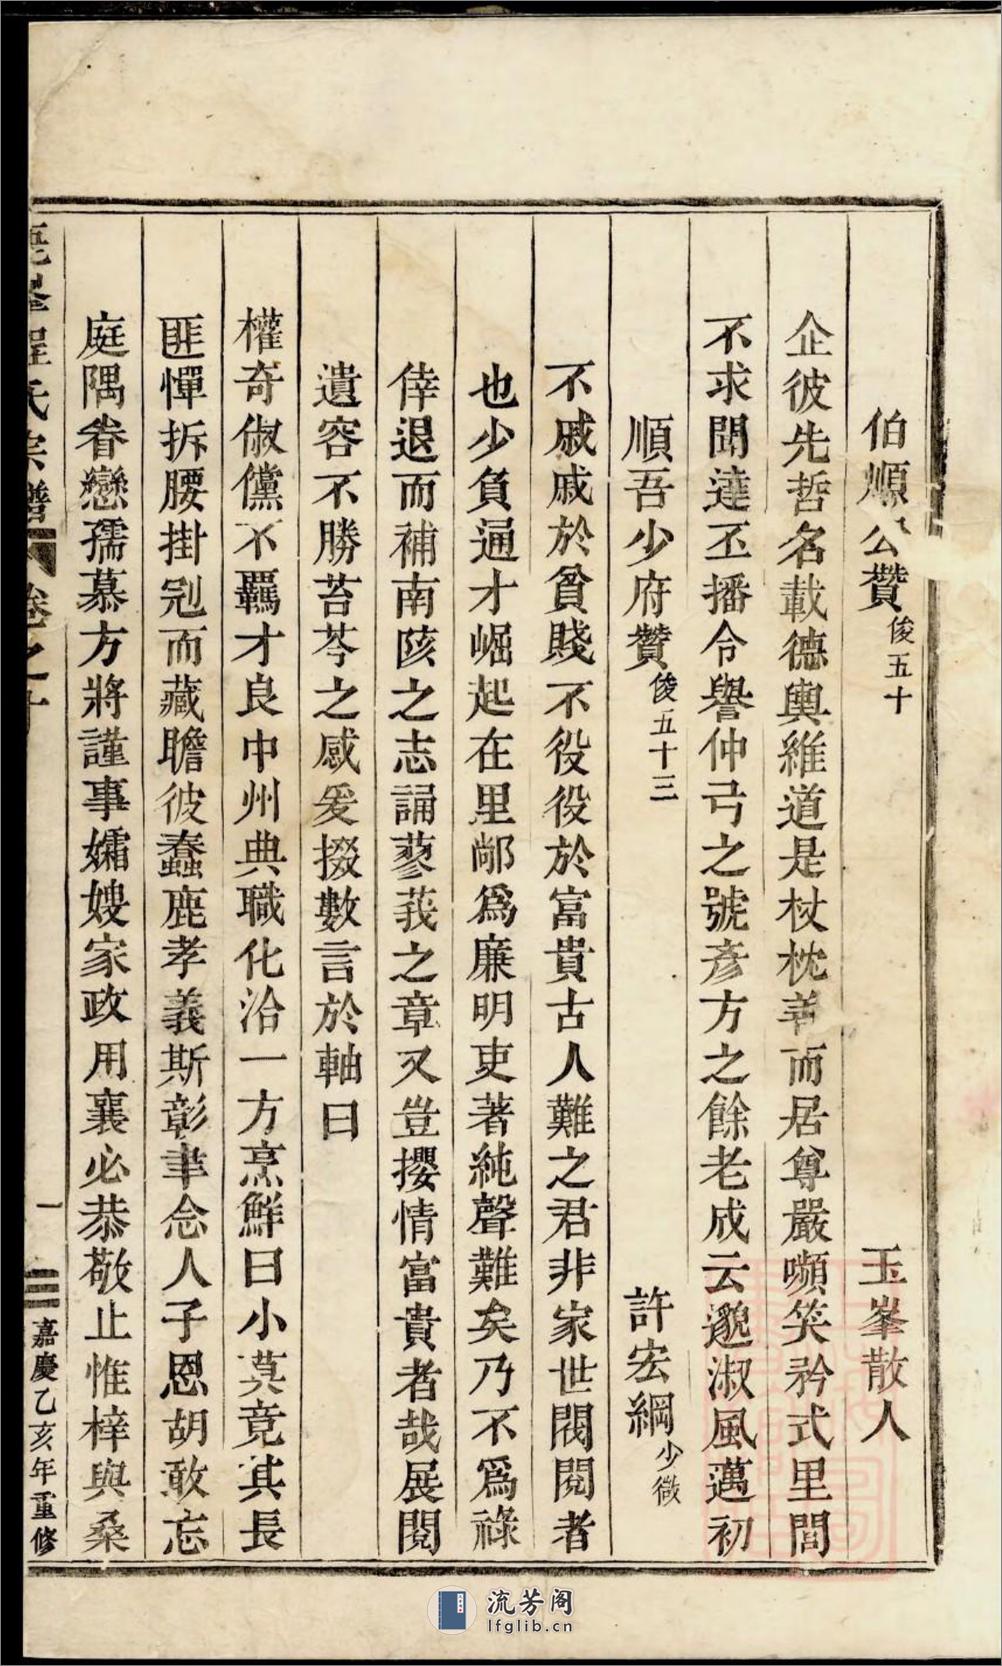 伯順公贊俊五十 玉峯散人
企彼先哲名載德輿維道是杖枕善而居尊嚴嚬笑矜式里閭
不求聞達丕播令譽仲弓之號彥方之餘老成云邈淑風邁初
順吾少府贊俊五十三 許宏綱少微
不戚戚於貧賤不役役於富貴古人難之君非家世閥閱者
也少負通才崛起在里鄙爲廉明吏著純聲難矣乃不爲祿
倖退而補南陔之志誦蓼莪之章又豈攖情富貴者哉展閱
遺容不勝苔芩之感爰掇數言於軸曰
權奇俶儻不羈才良中州典職化洽一方烹鮮曰小莫竟其長
匪憚折腰掛冠而藏瞻彼蠢鹿孝義斯彰聿念人子恩胡敢忘
庭隅眷戀孺慕方將謹事孀嫂家政用襄必恭敬止惟梓與桑
程氏宗譜 卷之十 一 嘉慶乙亥年重修
流芳阁
lfglib.cn